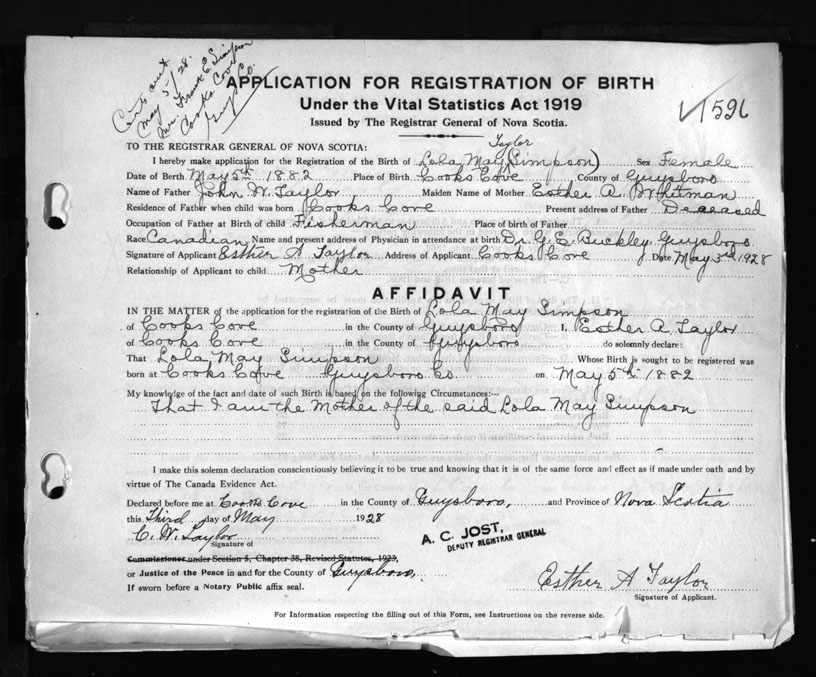 Certs sent
May 5/28.
Mr. Frank E Simpson
Cooks Cove
Guys. Co.
APPLICATION FOR REGISTRATION OF BIRTH
Under the Vital Statistics Act 1919
1596
Issued by The Registrar General of Nova Scotia.
TO THE REGISTRAR GENERAL OF NOVA SCOTIA:
Taylor
I hereby make application for the Registration of the Birth of Lola May (Simpson) Sex Female
Date of Birth May 5th 1882 Place of Birth Cooks Cove County of Guysboro
Name of Father John W. Taylor Maiden Name of Mother Esther A. Whitman
Residence of Father when child was born Cooks Cove Present address of Father Deceased
Occupation of Father at Birth of child Fisherman Place of birth of Father
Race Canadian Name and present address of Physician in attendance at birth Dr. G. E. Buckley Guysboro
Signature of Applicant Esther A Taylor Address of Applicant Cooks Cove Date May 3rd 1928
Relationship of Applicant to child Mother
AFFIDAVIT
IN THE MATTER of the application for the registration of the Birth of Lola May Simpson
of Cooks Cove in the County of Guysboro I, Esther A. Taylor
of Cooks Cove in the County of Guysboro do solemnly declare:
That Lola May Simpson Whose Birth is sought to be registered was
born at Cooks Cove Guysboro Co on May 5th 1882
My knowledge of the fact and date of such Birth is based on the following Circumstances:—
That I am the Mother of the said Lola May Simpson
I make this solemn declaration conscientiously believing it to be true and knowing that it is of the same force and effect as if made under oath and by
virtue of The Canada Evidence Act.
Declared before me at Cooks Cove in the County of Guysboro, and Province of Nova Scotia
this Third day of May 1928
C. W. Taylor
Signature of
A. C. JOST,
DEPUTY REGISTRAR GENERAL
Commissioner under Section 5, Chapter 38, Revised Statutes, 1923,
or Justice of the Peace in and for the County of Guysboro,
Esther A Taylor
If sworn before a Notary Public affix seal.
Signature of Applicant.
For Information respecting the filling out of this Form, see Instructions on the reverse side.